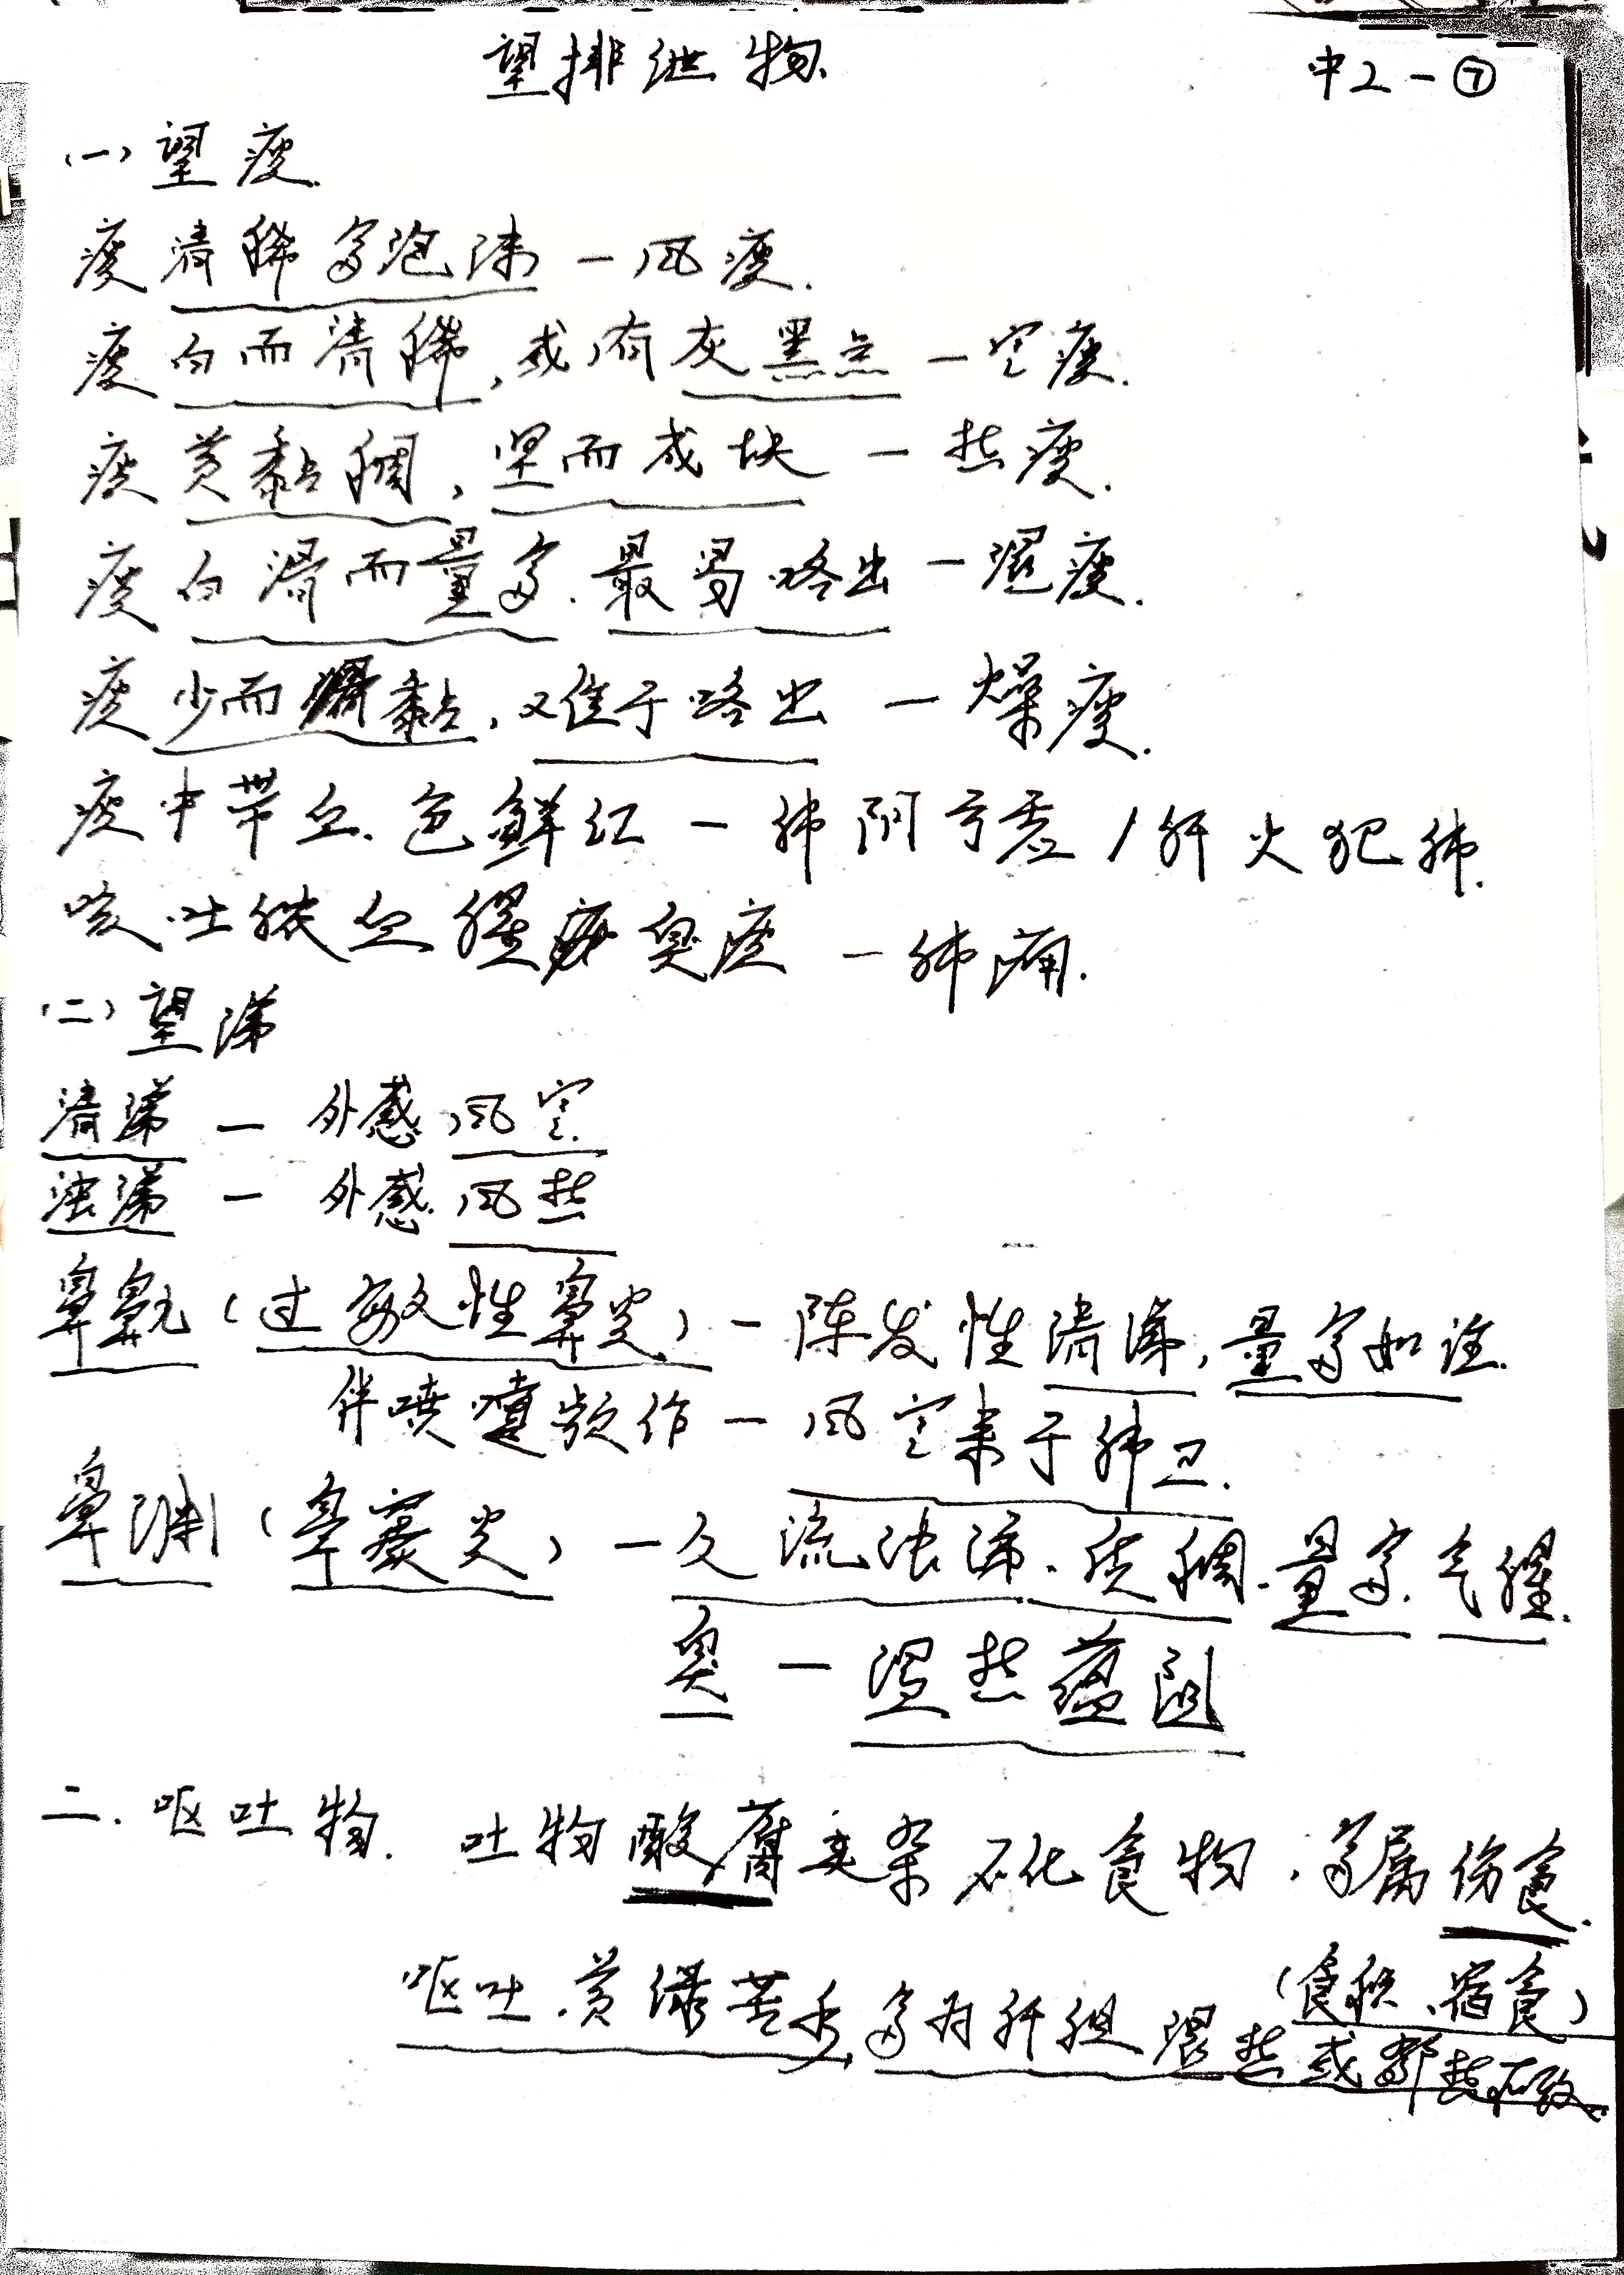 望排泄物
中2-⑦
(一)望痰.
痰清稀多泡沫-风痰.
痰白而清稀,或有灰黑点-寒痰.
痰黄黏稠,坚而成块-热痰.
痰白滑而量多.最易咯出-湿痰.
痰少而黏,难于咯出-燥痰.
痰中带血.色鲜红-肺阴亏虚/肝火犯肺.
咳吐脓血腥臭痰-肺痈.
(二)望涕
清涕-外感风寒.
浊涕-外感风热
鼻鼽(过敏性鼻炎)-阵发性清涕,量多如注.
伴喷嚏频作-风寒束于肺卫.
鼻渊(鼻窦炎)-久流浊涕.质稠.量多.气腥.
臭-湿热蕴阻
二.呕吐物. 吐物酸腐夹杂不化食物,多属伤食.
(食积、宿食)
呕吐黄绿苦水,多为肝胆湿热或郁热所致.